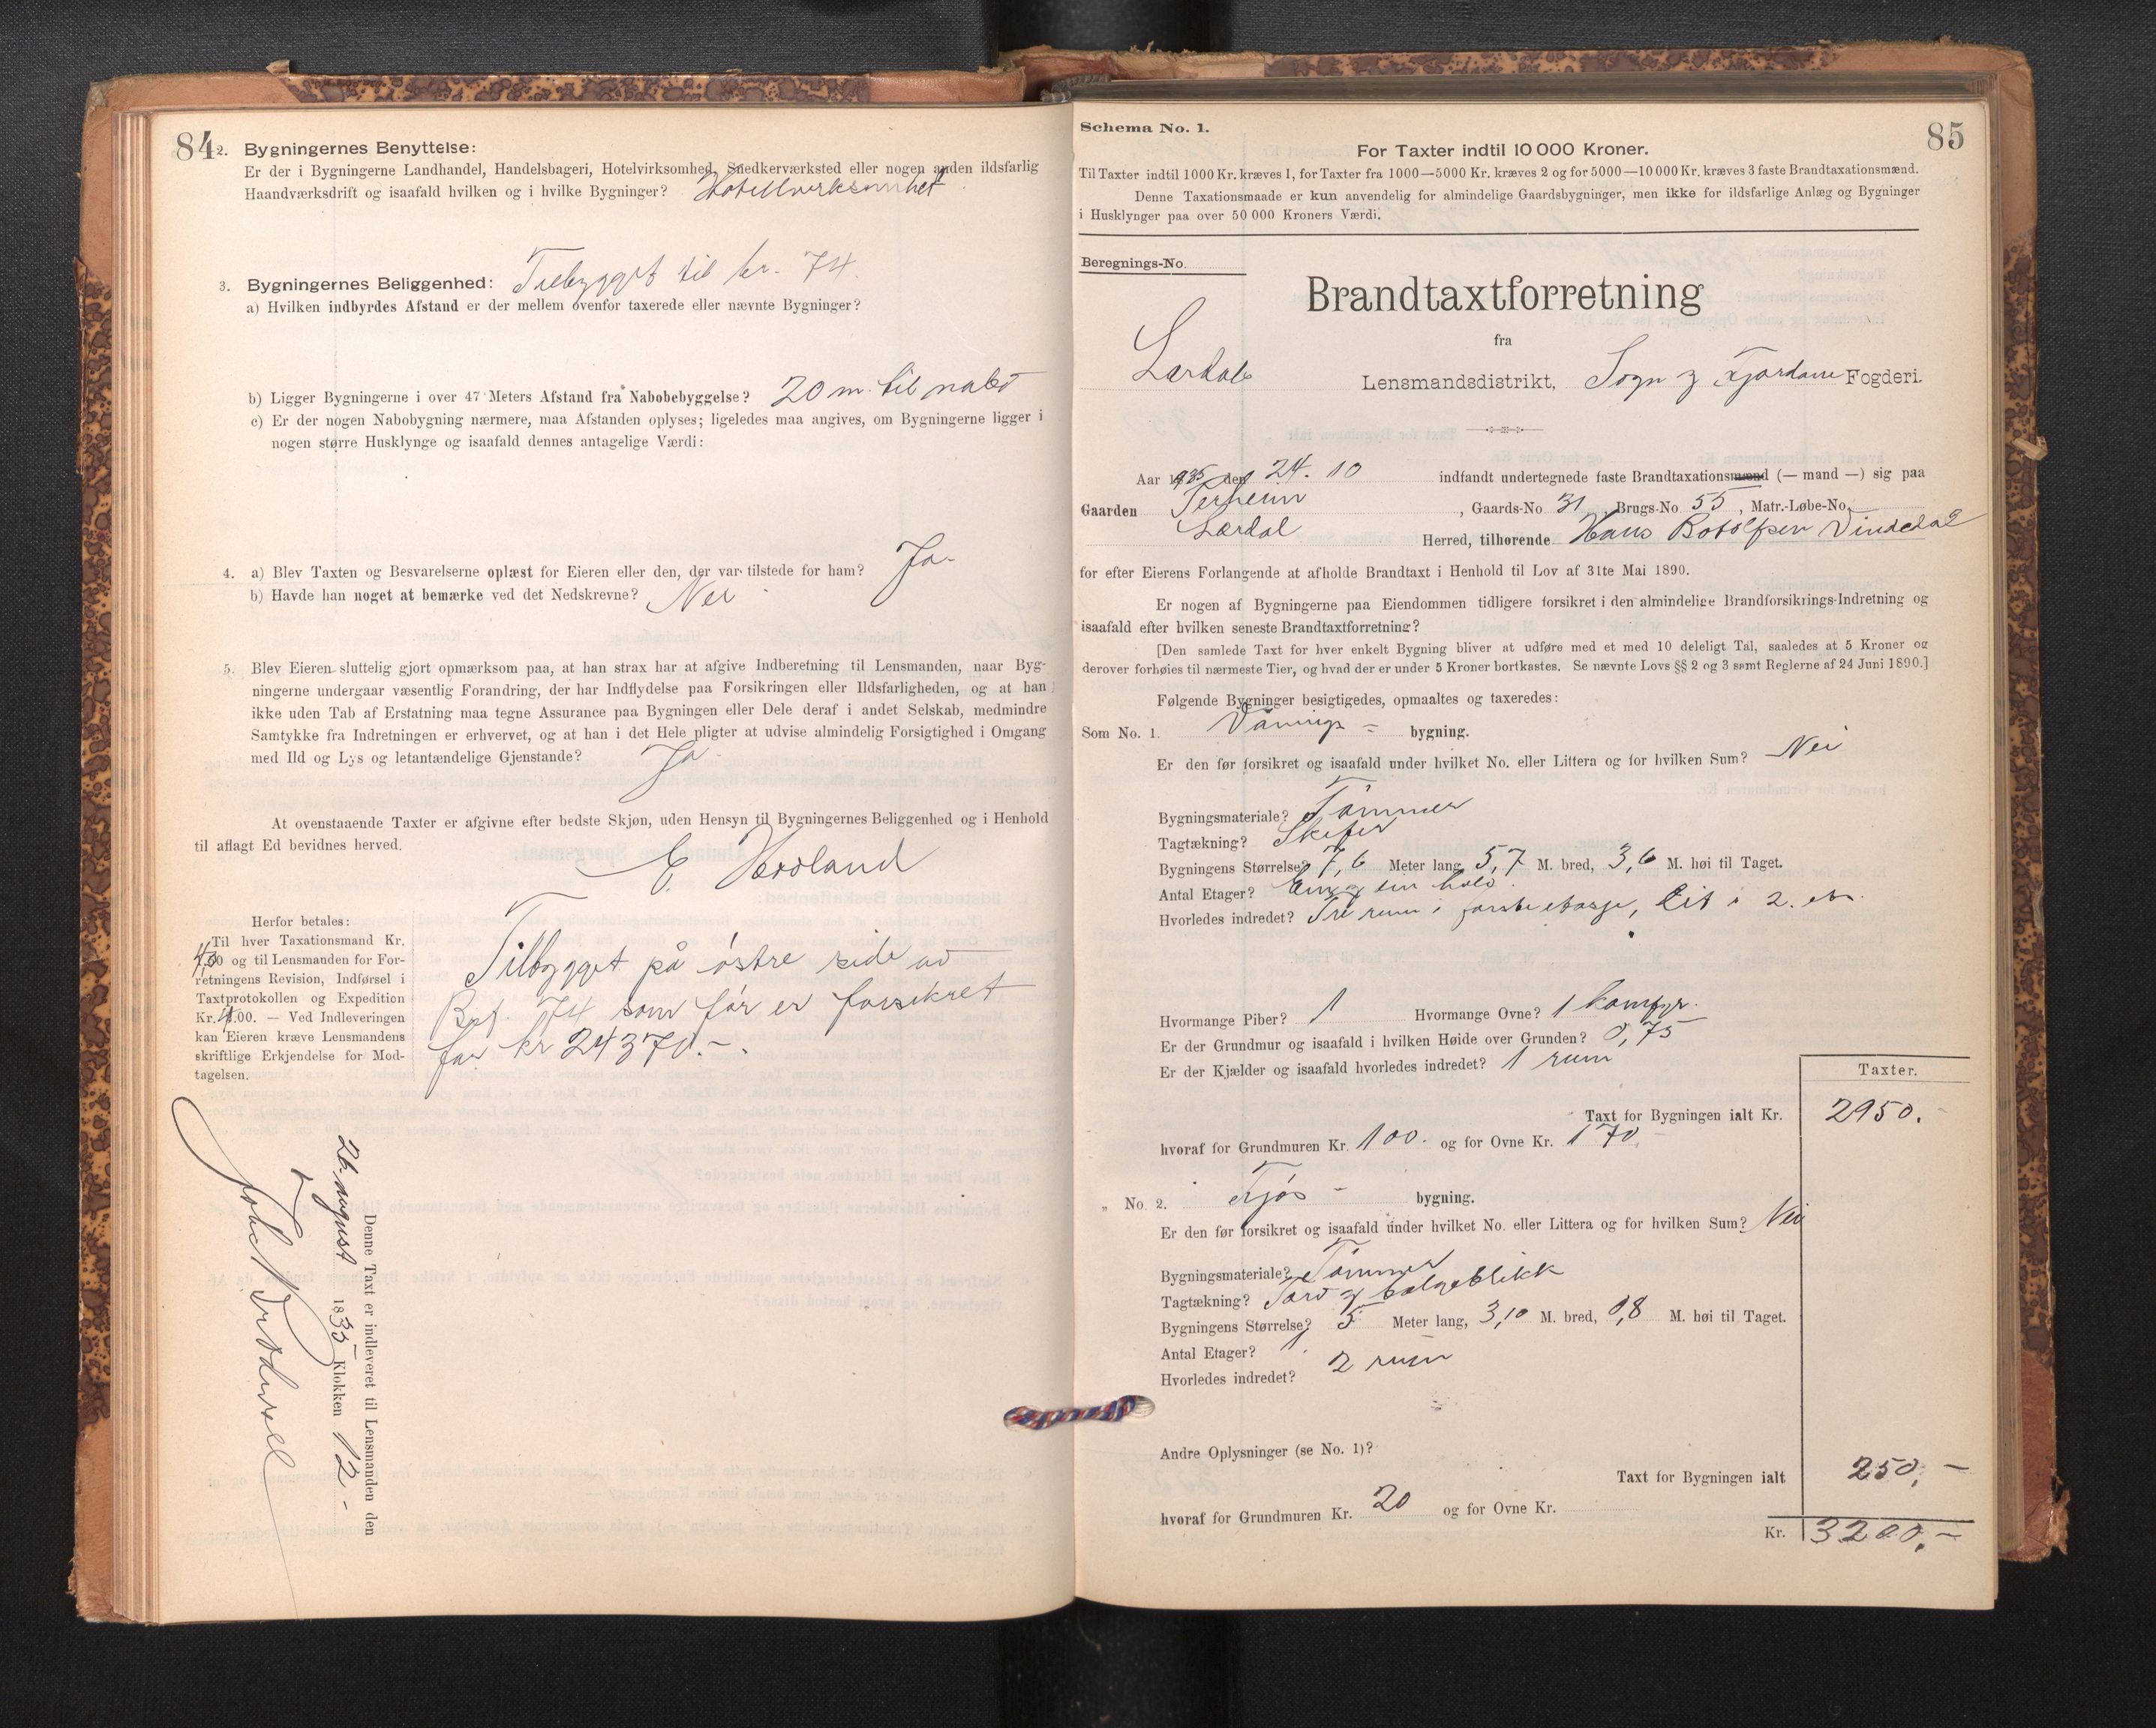 84
2. Bygningernes Benyttelse:
Er der i Bygningerne Landhandel, Handelsbageri, Hotelvirksomhed, Snedkerværksted eller nogen anden ildsfarlig
Haandværksdrift og isaafald hvilken og i hvilke Bygninger? Hotellvirksomhet
3. Bygningernes Beliggenhed: Tilbygget til br. 74.
a) Hvilken indbyrdes Afstand er der mellem ovenfor taxerede eller nævnte Bygninger?
b) Ligger Bygningerne i over 47 Meters Afstand fra Nabobebyggelse? 20 m. til nabo
c) Er der nogen Nabobygning nærmere, maa Afstanden oplyses; ligeledes maa angives, om Bygningerne ligger i
nogen større Husklynge og isaafald dennes antagelige Værdi:
4. a) Blev Taxten og Besvarelserne oplæst for Eieren eller den, der var tilstede for ham? Ja-
b) Havde han noget at bemærke ved det Nedskrevne? Nei
5. Blev Eieren sluttelig gjort opmærksom paa, at han strax har at afgive Indberetning til Lensmanden, naar Byg-
ningerne undergaar væsentlig Forandring, der har Indflydelse paa Forsikringen eller Ildsfarligheden, og at han
ikke uden Tab af Erstatning maa tegne Assurance paa Bygningen eller Dele deraf i andet Selskab, medmindre
Samtykke fra Indretningen er erhvervet, og at han i det Hele pligter at udvise almindelig Forsigtighed i Omgang
med Ild og Lys og letantændelige Gjenstande? Ja
At ovenstaaende Taxter er afgivne efter bedste Skjøn, uden Hensyn til Bygningernes Beliggenhed og i Henhold
til aflagt Ed bevidnes herved.
E.
Herfor betales:
Til hver Taxationsmand Kr.
4,00 og til Lensmanden for For-
retningens Revision, Indførsel i
Taxtprotokollen og Expedition
Kr. 4.00. — Ved Indleveringen
kan Eieren kræve Lensmandens
skriftlige Erkjendelse for Mod-
tagelsen.
Tilbygget på østre side av
Byg. 74 som før er forsikret
for kr 24370.-.
Denne Taxt er indleveret til Lensmanden den
26. august 1835 Klokken 12 -
85
Schema No. 1.
For Taxter indtil 10 000 Kroner.
Til Taxter indtil 1000 Kr. kræves 1, for Taxter fra 1000—5000 Kr. kræves 2 og for 5000—10 000 Kr. kræves 3 faste Brandtaxationsmænd.
Denne Taxationsmaade er kun anvendelig for almindelige Gaardsbygninger, men ikke for ildsfarlige Anlæg og Bygninger
i Husklynger paa over 50 000 Kroners Værdi.
Beregnings-No.
Brandtaxtforretning
fra
Lærdals Lensmandsdistrikt, Sogn og Fjordane Fogderi.
Aar 1935 den 24. 10 indfandt undertegnede faste Brandtaxationsmænd (— mand —) sig paa
Gaarden , Gaards-No 31 , Brugs-No 55 , Matr.-Løbe-No.
Lærdal Herred, tilhørende Hans Botolfsen Vindedal
for efter Eierens Forlangende at afholde Brandtaxt i Henhold til Lov af 31te Mai 1890.
Er nogen af Bygningerne paa Eiendommen tidligere forsikret i den almindelige Brandforsikrings-Indretning og
isaafald efter hvilken seneste Brandtaxtforretning?
[Den samlede Taxt for hver enkelt Bygning bliver at udføre med et med 10 deleligt Tal, saaledes at 5 Kroner og
derover forhøies til nærmeste Tier, og hvad der er under 5 Kroner bortkastes. Se nævnte Lovs §§ 2 og 3 samt Reglerne af 24 Juni 1890.]
Følgende Bygninger besigtigedes, opmaaltes og taxeredes:
Som No. 1. Vånings - bygning.
Er den før forsikret og isaafald under hvilket No. eller Littera og for hvilken Sum? Nei
Bygningsmateriale? Tømmer
Tagtækning? Skifer
Bygningens Størrelse? 7,6 Meter lang, 5,7 M. bred, 3,6 M. høi til Taget.
Antal Etager? Ein og ein halv.
Hvorledes indredet? Tre rum i første etasje, eit i 2. et.
Hvormange Piber? 1 Hvormange Ovne? 1 komfyr.
Er der Grundmur og isaafald i hvilken Høide over Grunden? 0,75
Er der Kjælder og isaafald hvorledes indredet? 1 rum
Taxter.
Taxt for Bygningen ialt Kr. 2950.
hvoraf for Grundmuren Kr. 100. og for Ovne Kr. 170
„ No. 2. Fjøs - bygning.
Er den før forsikret og isaafald under hvilket No. eller Littera og for hvilken Sum? Nei
Bygningsmateriale? Tømmer
Tagtækning? Torv og bølgeblikk
Bygningens Størrelse? 5 Meter lang, 3,10 M. bred, 0,8 M. høi til Taget.
Antal Etager? 1
Hvorledes indredet? 2 rum
Andre Oplysninger (se No. 1)?
Taxt for Bygningen ialt 250,-
hvoraf for Grundmuren Kr. 20 og for Ovne Kr.
Kr. 3200,-